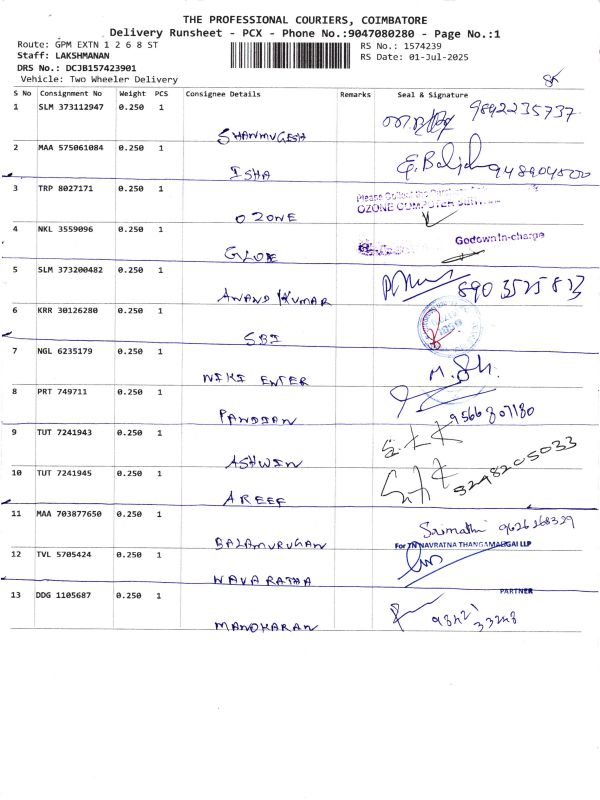 THE PROFESSIONAL COURIERS, COIMBATORE
Delivery Runsheet - PCX - Phone No.:9047080280 - Page No.:1
Route: GPM EXTN 1 2 6 8 ST
RS No.: 1574239
Staff: LAKSHMANAN
RS Date: 01-Jul-2025
DRS No.: DCJB157423901
Vehicle: Two Wheeler Delivery
S No Consignment No Weight PCS Consignee Details Remarks Seal & Signature
1 SLM 373112947 0.250 1
SHANMUGESH 9892235737
2 MAA 575061084 0.250 1
ISHA
3 TRP 8027171 0.250 1
OZONE
OZONE COMPUTER
4 NKL 3559096 0.250 1
GLOBE
Godown In-charge
5 SLM 373200482 0.250 1
ANAND KUMAR
6 KRR 30126280 0.250 1
SBI
7 NGL 6235179 0.250 1
NIKI ENTER
8 PRT 749711 0.250 1
PANDIAN
9566307180
9 TUT 7241943 0.250 1
ASHWIN
10 TUT 7241945 0.250 1
AREEF
11 MAA 703877650 0.250 1
BALAMURUGAN
Srimathi 9626268329
For TN NAVRATNA THANGAMALIGAI LLP
12 TVL 5705424 0.250 1
NAVARATNA
PARTNER
13 DDG 1105687 0.250 1
MANOHARAN